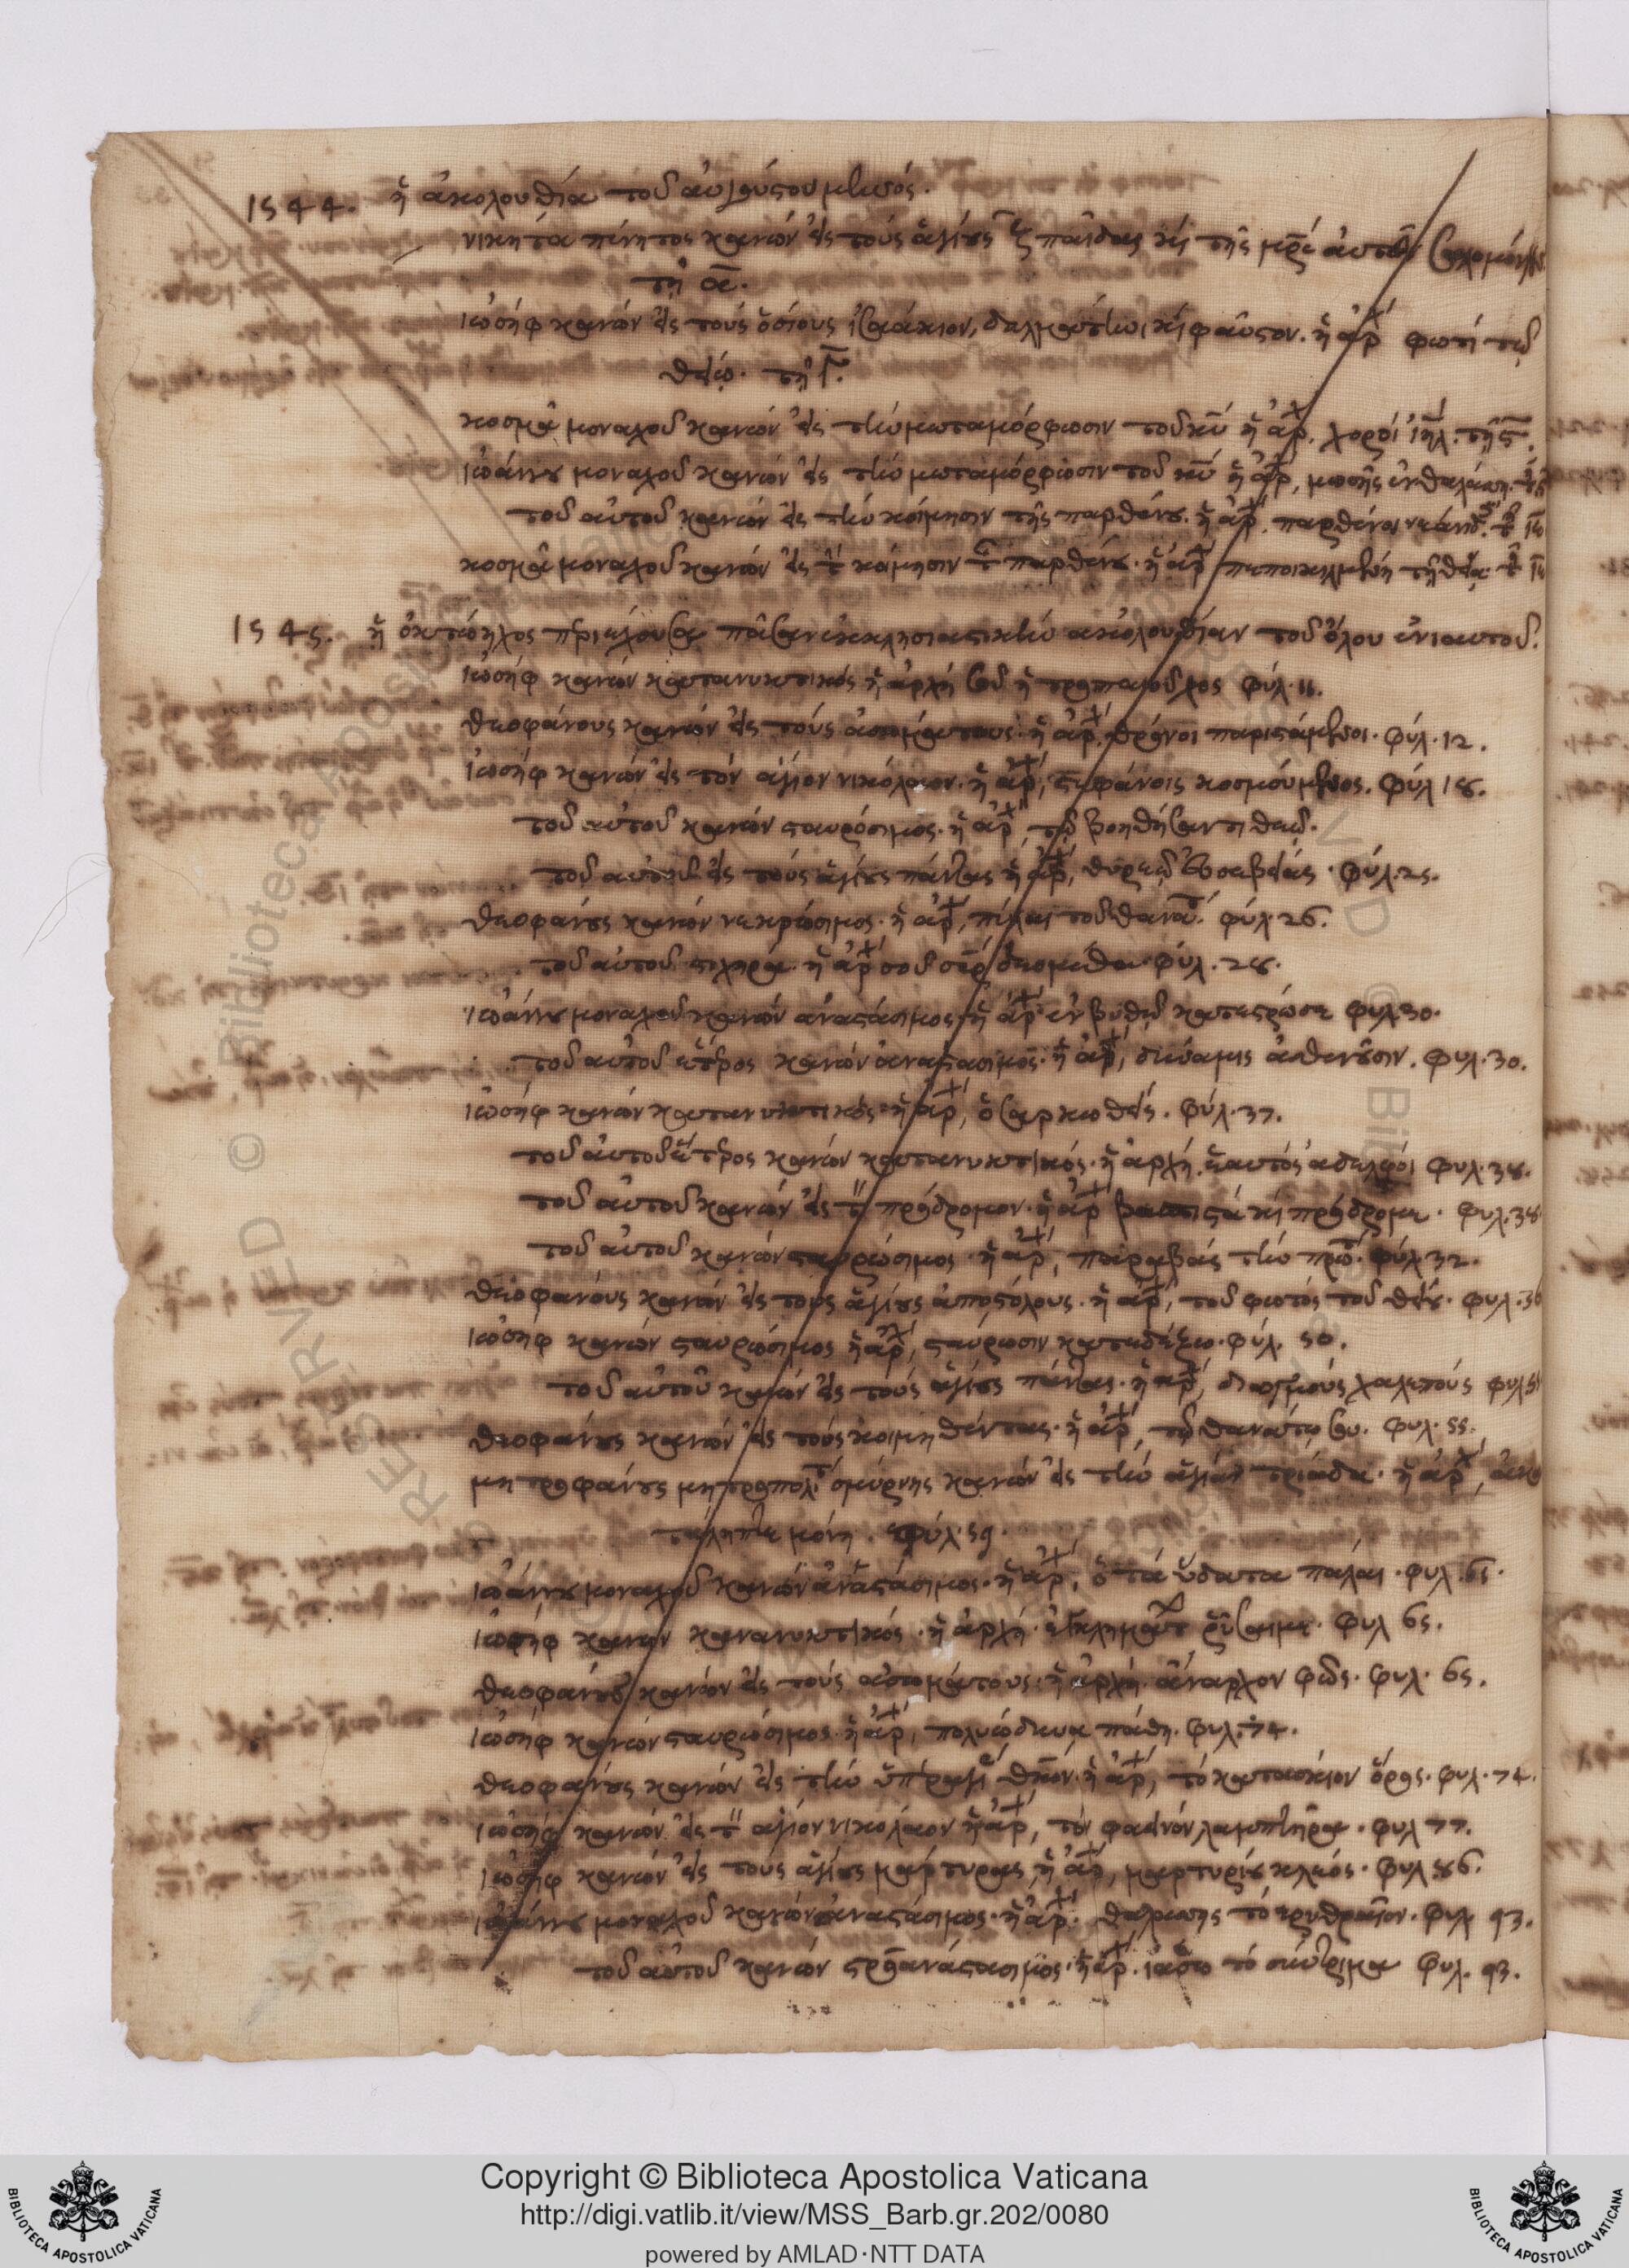 1544. ἡ ἀκολουθία τοῦ αὐγούστου μηνός.
νικήτα πένητος κανών εἰς τούς ἁγίους ζ παῖδας κὶ τῆς μρς αὐτῶν
τῇ αῃ.
ἰωσήφ κανών εἰς τούς ὁσίους ἰσαάκιον, δαλμάτον κὶ φαῦστον. ἡ ἀρχ φωτί τῷ
θείῳ. τῇ γ.
κοσμᾶ μοναχοῦ κανών εἰς τήν μεταμόρφωσιν τοῦ κυ ἡ ἀρχ. χοροί ἰηλ. τῇ ς.
ἰωάννου μοναχοῦ κανών εἰς τήν μεταμόρφωσιν τοῦ κυ ἡ ἀρχ, μωσῆς ἐν θαλάσσῃ.
τοῦ αὐτοῦ κανών εἰς τήν κοίμησιν τῆς παρθένου. ἡ ἀρχ. παρθένοι νεάνιδ. τ ιε
κοσμᾶ μοναχοῦ κανών εἰς τ κοίμησιν τ παρθένου. ἡ ἀρχ πεποικιλμένη τῇ θείᾳ τ ιε
1545. ἡ ὀκτώηχος περιέχουσα πᾶσαν ἐκκλησιαστικήν ἀκολουθίαν τοῦ ὅλου ἐνιαυτοῦ.
ἰωσήφ κανών κατανυκτικός ἡ ἀρχή σοῦ ἡ τροπαιοῦχος φύλ. 11.
θεοφάνους κανών εἰς τούς ἀσωμάτους. ἡ ἀρχ, θρόνοι παριστάμενοι. φύλ. 12.
ἰωσήφ κανών εἰς τόν ἅγιον νικόλαον. ἡ ἀρχ, στεφάνοις κοσμούμενος. φύλ 18.
τοῦ αὐτοῦ κανών σταυρόσιμος. ἡ ἀρχ, τῷ βοηθήσαντι θεῷ.
τοῦ αὐτοῦ εἰς τούς ἁγίους πάντας ἡ ἀρχ, θυρεῷ εὐσεβείας. φύλ. 25.
θεοφάνους κανών νεκρώσιμος. ἡ ἀρχ, πύλαι τοῦ θανάτ. φύλ. 26.
τοῦ αὐτοῦ στιχηρά. ἡ ἀρχ σοῦ σερ δεόμεθα. φύλ. 28.
ἰωάννου μοναχοῦ κανών ἀναστάσιμος. ἡ ἀρχ ἐν βυθῷ κατέστρωσε φύλ 30.
τοῦ αὐτοῦ ἕτερος κανών ἀναστασιμος. ἡ ἀρχ, δύναμις ἀσθενοῦσιν. φυλ. 30.
ἰωσήφ κανών κατανυκτικός. ἡ ἀρχ, ὁ σαρκωθείς. φύλ. 37.
τοῦ αὐτοῦ ἕτερος κανών κατανυκτικός. ἡ ἀρχή. ἑαυτός ἀδελφοί φυλ. 38.
τοῦ αὐτοῦ κανών εἰς τ πρόδρομον. ἡ ἀρχ βαπτιστά κὶ πρόδρομε. φυλ. 38
τοῦ αὐτοῦ κανών σταυρώσιμος. ἡ ἀρχ, παραβάς τήν πρώ. φύλ. 32.
θεοφάνους κανών εἰς τους ἁγίους ἀποστόλους. ἡ ἀρχ, τοῦ φωτός τοῦ θείου. φυλ.
ἰωσήφ κανών σταυρώσιμος ἡ ἀρχ, σταύρωσιν κατεδέξω. φύλ. 50.
τοῦ αὐτοῦ κανών εἰς τούς ἁγίους πάντας. ἡ ἀρχ, διωγμούς χαλεπούς φυλ
θεοφάνους κανών εἰς τούς κοιμηθέντας. ἡ ἀρχ, τῷ θανάτῳ σου. φυλ. 55.
μητροφάνους μητροπολίτ σμύρνης κανών εἰς τήν ἁγίαν τριάδα. ἡ ἀρχ,
μόνη. φύλ. 59.
ἰωάννου μοναχοῦ κανών ἀναστάσιμος. ἡ ἀρχ, ὁ τά ὕδατα πάλαι. φυλ 65.
ἰωσήφ κανών κατανυκτικός. ἡ ἀρχή. ἐγκλημάτ ῥῦσαι με. φυλ 65.
θεοφάνους κανών εἰς τούς ἀσωμάτους. ἡ ἀρχή. ἄναρχον φῶς. φυλ. 65.
ἰωσήφ κανών σταυρώσιμος. ἡ ἀρχ, πολυώδυνα πάθη. φυλ. 74.
θεοφάνους κανών εἰς τήν ὑπεραγί θκον. ἡ ἀρχ, τό κατάσκιον ὄρος. φυλ. 74.
ἰωσήφ κανών εἰς τ ἅγιον νικόλαον ἡ ἀρχ, τόν φαεινόν λαμπτῆρα. φυλ 77.
ἰωσήφ κανών εἰς τούς ἁγίους μάρτυρας, ἡ ἀρχ, μαρτυρίου κλέος. φυλ 86.
ἰωάννου μοναχοῦ κανών ἀναστάσιμος. ἡ ἀρχ. θαλάσσης τό ἐρυθραῖον. φυλ 93.
τοῦ αὐτοῦ κανών στροαναστάσιμος. ἡ ἀρχ. ἰάσω τό σύντριμμα φυλ. 93.
Copyright © Biblioteca Apostolica Vaticana
http://digi.vatlib.it/view/MSS_Barb.gr.202/0080
powered by AMLAD·NTT DATA
BIBLIOTECA APOSTOLICA VATICANA
BIBLIOTECA APOSTOLICA VATICANA